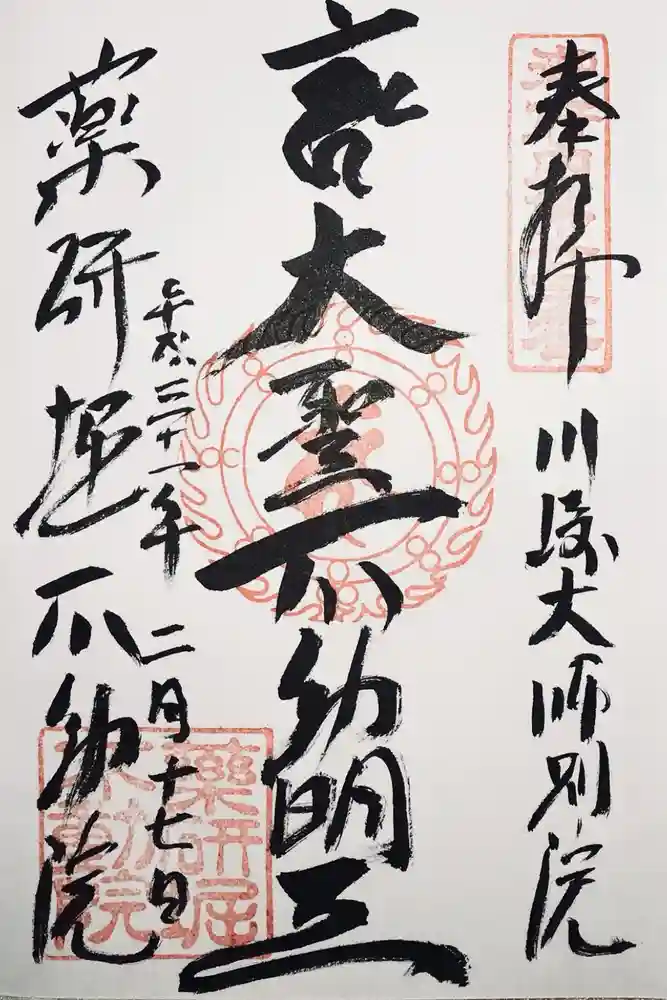 奉拝
川崎大師別院
大聖不動明王
平成三十一年二月十七日
薬研堀不動院
藥研堀
不動院